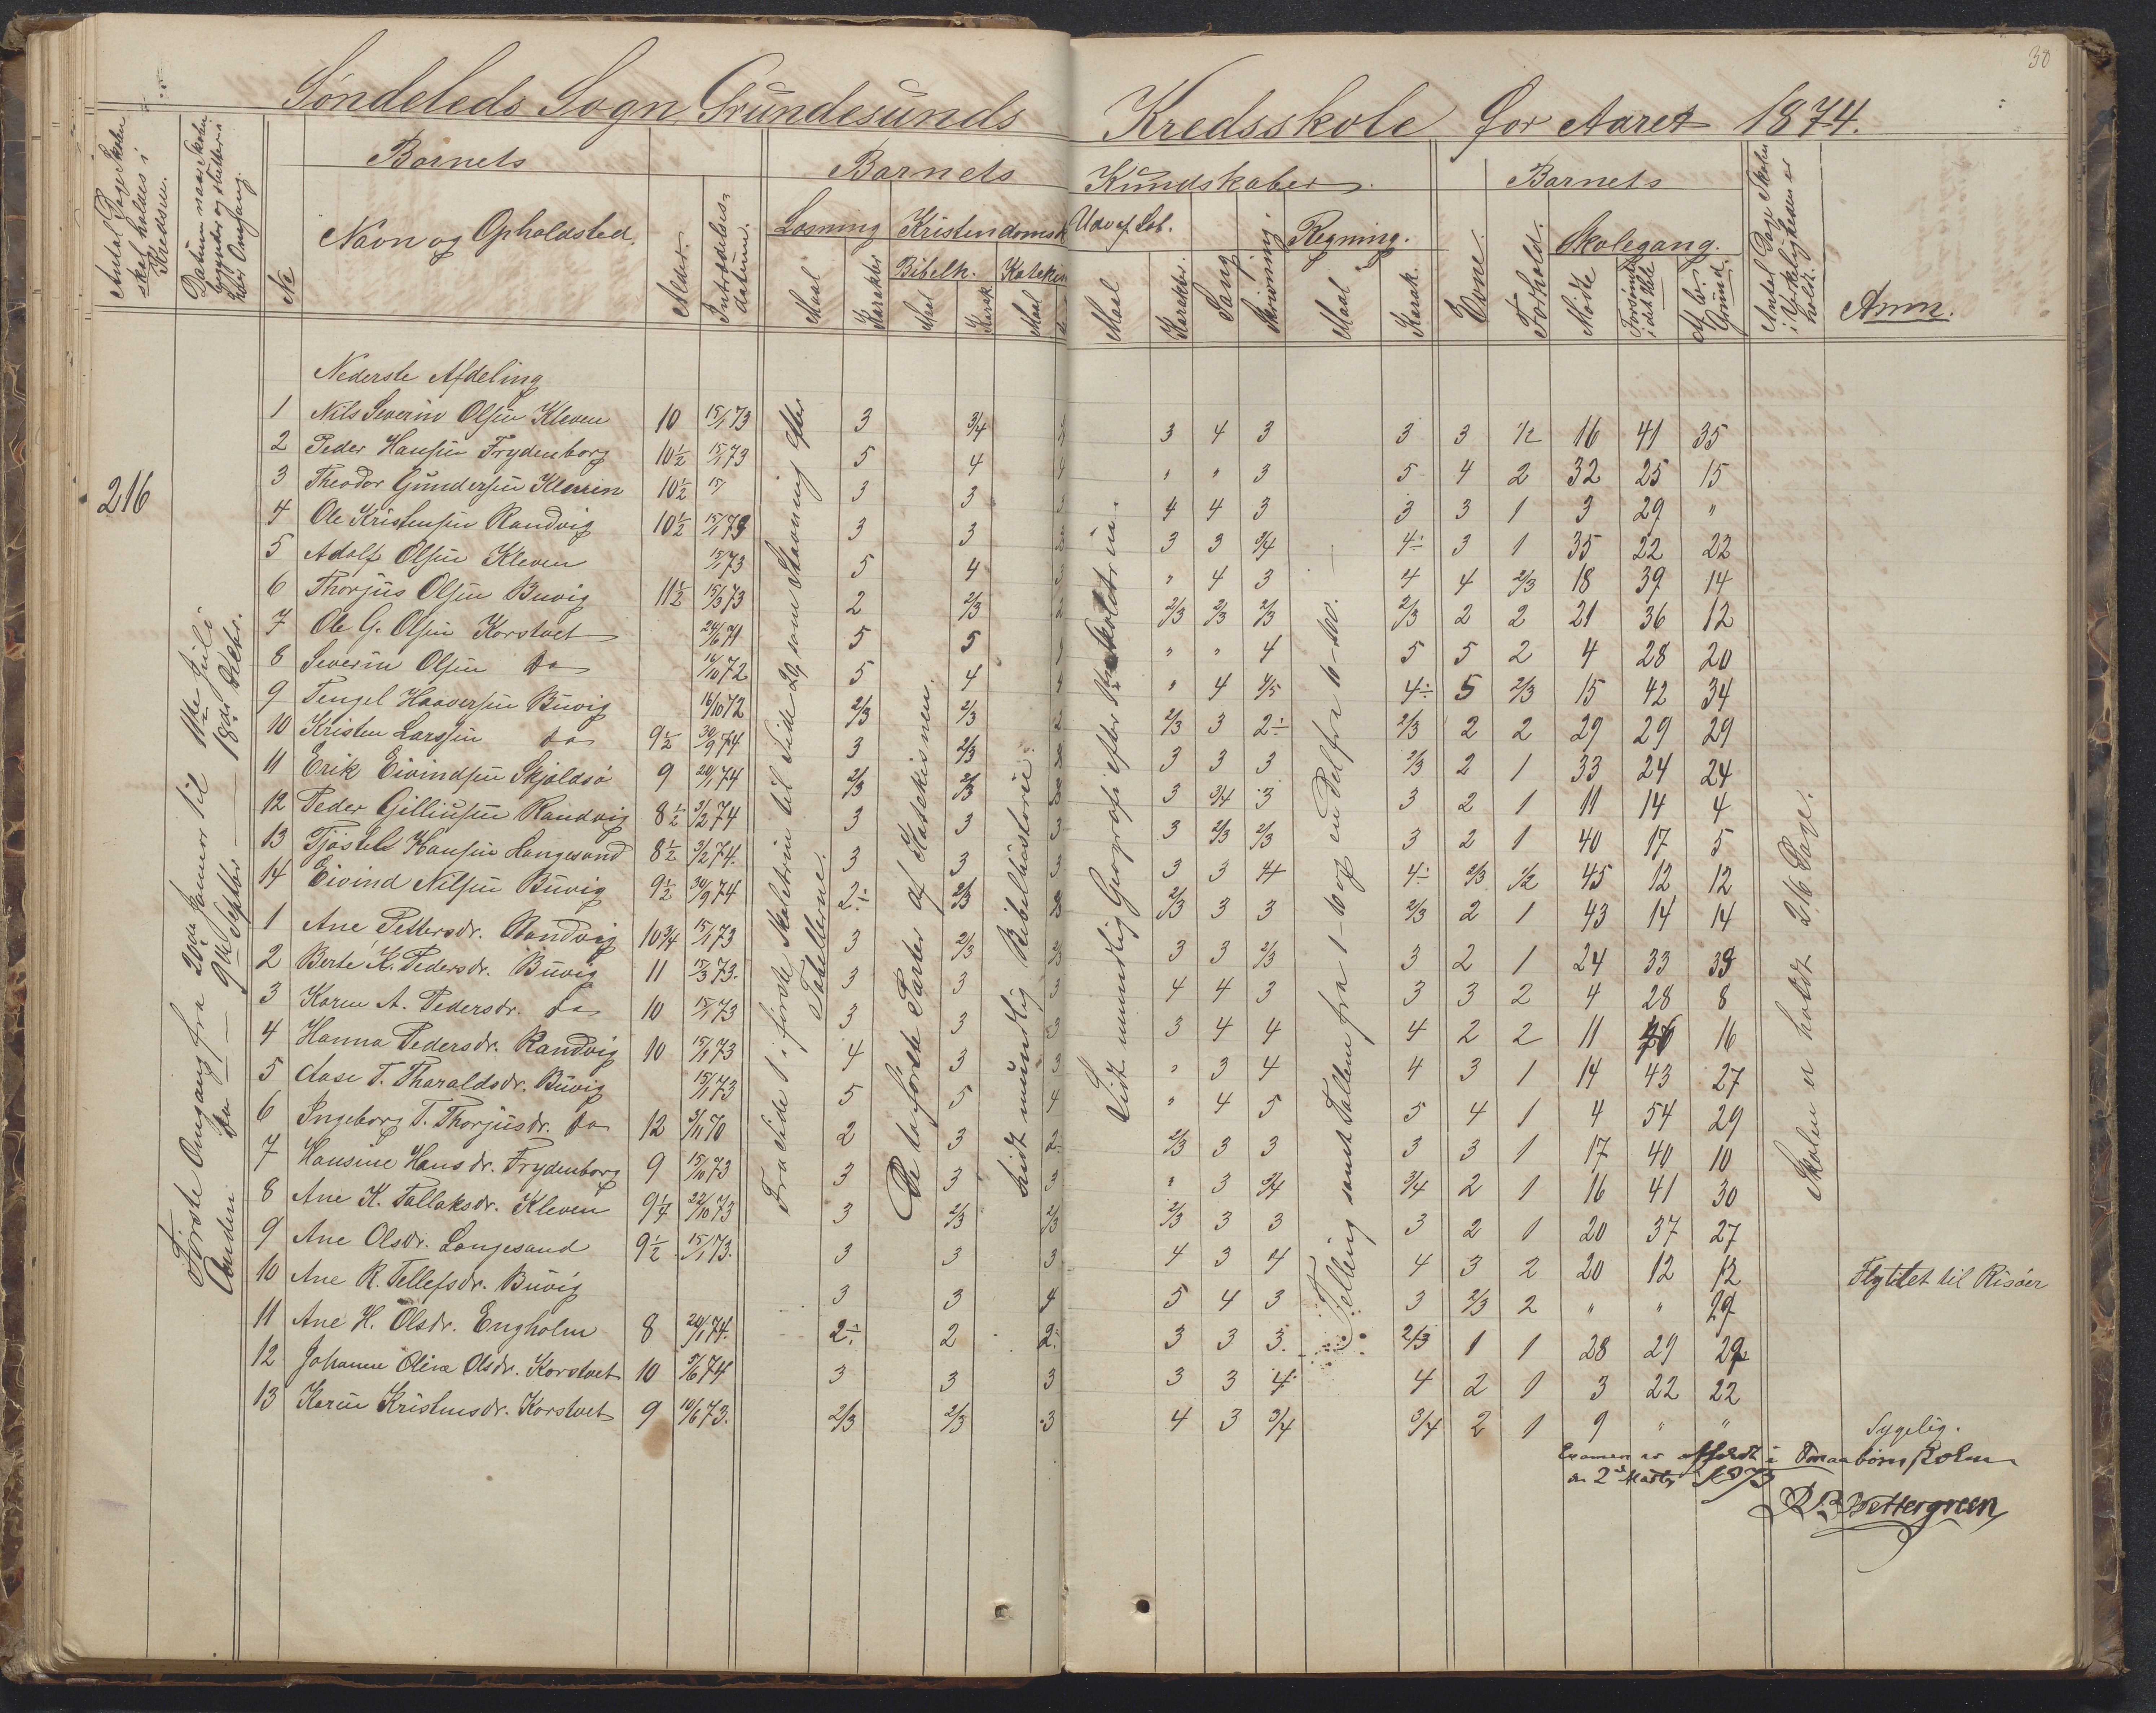 30
Søndeleds Sogn, Grundesunds Kredsskole for Aaret 1874.
Antal Dage Skolen skal holdes i Kredsen.
Datum naar Skolen begynder og slutter hver Omgang.
№
Barnets
Navn og Opholdsted.
Alder.
Indtrædelses-datum.
Barnets Kundskaber.
Læsning
Kristendomsk
Maal
Karakter
Bibelh.
Maal
Karak.
Katekis
Maal
Udv. af Læb.
Maal
Karakter.
Sang
Skrivning
Regning.
Maal
Karak.
Evne.
Forhold.
Barnets
Skolegang.
Mødte
Forsømte i det Hele
Af lov. Grund.
Antal Dage Skolen i Virkeligheden er holdt.
Anm.
216
Første Omgang fra 20de Januar til 11te Juli
Anden Do — 9de Septbr — 18de Decbr.
Nederste Afdeling
1 Nils Severin Olsen Kleven 10 15/1 73 3 3/4 3 4 3 3 3 1/2 16 41 35
2 Peder Hansen Frydenborg 10½ 15/1 73 5 4 4 " " 3 5 4 2 32 25 15
3 Theodor Gundersen Kleven 10½ 15/ 3 3 3 4 4 3 3 3 1 3 29 "
4 Ole Kristensen Randvig 10½ 15/1 73 3 3 3 3 3 3/4 4÷ 3 1 35 22 22
5 Adolf Olsen Kleven 15/1 73 5 4 " 4 3 4 4 2/3 18 39 14
6 Thorjus Olsen Buvig 11½ 15/3 73 2 2/3 2 2/3 2/3 2/3 2/3 2 2 21 36 12
7 Ole G. Olsen Korstvet 24/6 71 5 5 " " 4 5 5 2 4 28 20
8 Severin Olsen Do 16/10 72 5 4 4 " 4 4/5 4÷ 5 2/3 15 42 34
9 Tengel Haaversen Buvig 16/10 72 2/3 2/3 2 2/3 3 2÷ 2/3 2 2 29 29 29
10 Kristen Larssen Do 9½ 30/9 74 3 2/3 3 3 3 3 2/3 2 1 33 24 24
11 Erik Eivindsen Skjoldsø 9 20/1 74 2/3 2/3 3 3/4 3 3 2 1 11 14 4
12 Peder Gilliusen Randvig 8½ 3/2 74 3 3 3 3 2/3 2/3 3 2 1 40 17 5
13 Tjøstel Hansen Langesand 8½ 3/2 74. 3 3 3 3 3 4 4÷ 2/3 1/2 45 12 12
14 Eivind Nilsen Buvig 9½ 30/9 74 2÷ 2/3 3 2/3 3 3 2/3 2 1 43 14 14
1 Ane Pettersdr. Randvig 10¾ 15/1 73 3 2/3 2/3 3 3 2/3 3 2 1 24 33 33
2 Berte K. Pedersdr. Buvig 11 15/3 73. 3 3 3 4 4 3 3 3 2 4 28 8
3 Karen A. Pedersdr. Do 10 15/1 73 3 3 3 3 4 4 4 2 2 11 26 16
4 Hanna Pedersdr. Randvig 10 15/1 73 4 3 3 " 3 4 4 3 1 14 43 27
5 Aase T. Tharaldsdr. Buvig 15/1 73 5 5 4 " 4 5 5 4 1 4 54 29
6 Ingeborg T. Thorjusdr. Do 12 3/11 70 2 3 2 2/3 3 3 3 3 1 17 40 10
7 Hansine Hansdr. Frydenborg 9 15/10 73 3 3 3 " 3 3/4 3/4 2 1 16 41 30
8 Ane K. Tallaksdr. Kleven 9¼ 22/10 73 3 2/3 2/3 2/3 3 3 3 2 1 20 37 27
9 Ane Olsdr. Langesand 9½ 15/1 73. 3 3 3 4 3 4 4 3 2 20 12 12 Flyttet til Risøer
10 Ane R. Tellefsdr. Buvig 3 3 4 5 4 3 3 2/3 2 " " 29
11 Ane H. Olsdr. Engholm 8 20/1 74. 2÷ 2 2÷ 3 3 3 2/3 1 1 28 29 29
12 Johanne Oline Olsdr. Korstvet 10 5/6 74 3 3 3 3 3 4 4 2 1 3 22 22
13 Karen Kristensdr. Korstvet 9 10/6 73. 2/3 2/3 3 4 3 3/4 3/4 2 1 9 " " Sygelig.
Fra Side 1 i første Skoletrin til Side 29, som Stavning efter
Tabellerne.
De to første Parter af Katekismen.
Lidt mundlig Bibelhistorie.
Lidt mundlig Geografi efter Skoletrin.
Telling samt Tallene fra 1–10 og en Del fra 10–100.
Skolen er holdt 216 Dage.
Examen er afholdt i Smaabørnskolen
den 2den Marts 1873
Wettergreen